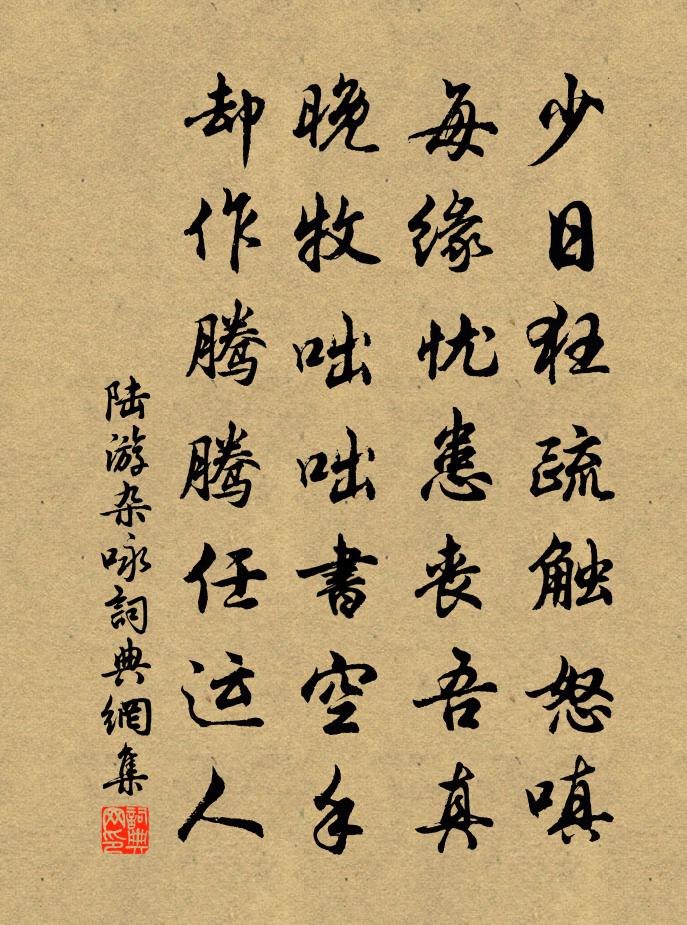 少日狂疏触怒嗔
每缘忧患丧吾真
晚牧咄咄書空手
却作腾腾任运人
陆游杂咏詞典網集
詞典網印